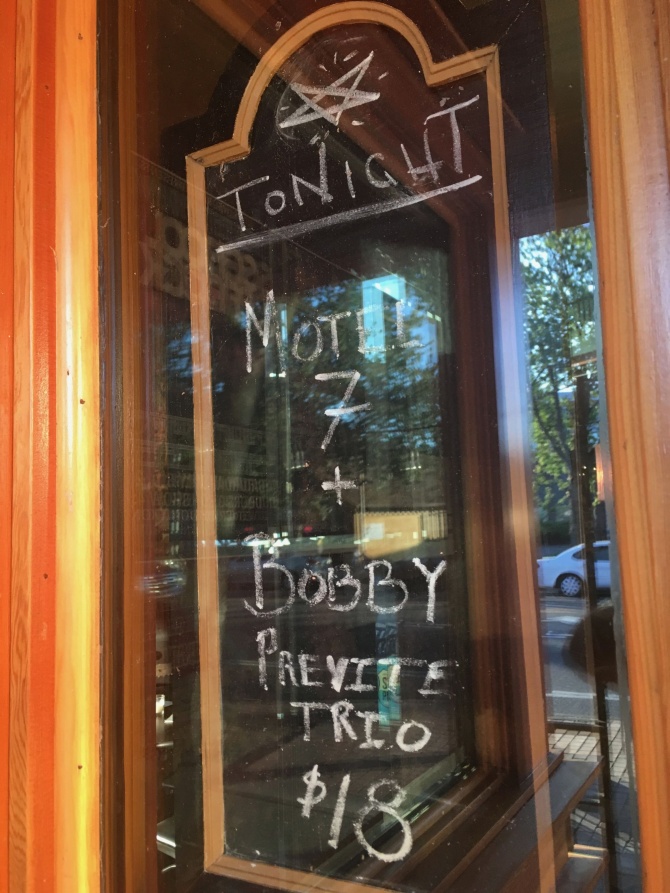 TONIGHT
MOTEL
7
+
BOBBY
PREVITE
TRIO
$18